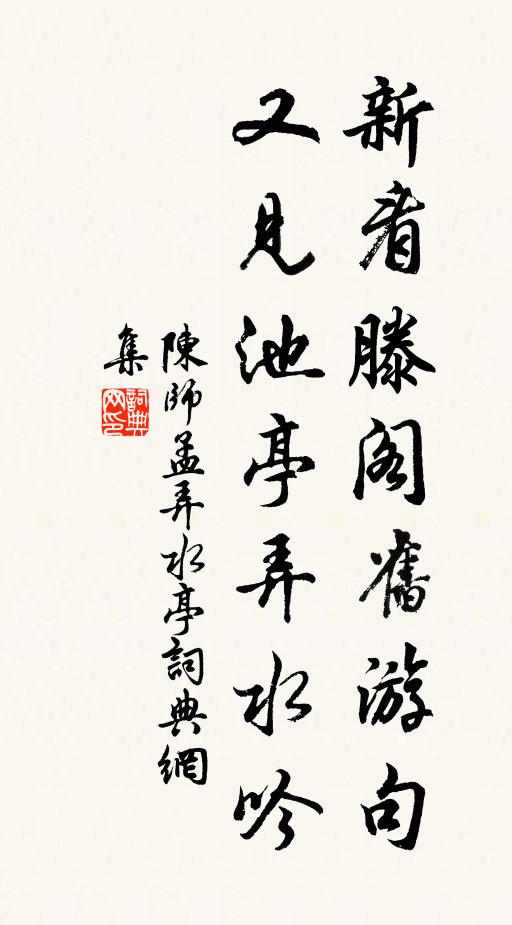 新看滕阁舊游句
又見池亭弄水吟
陳師孟弄水亭詞典網
集
詞典
网印